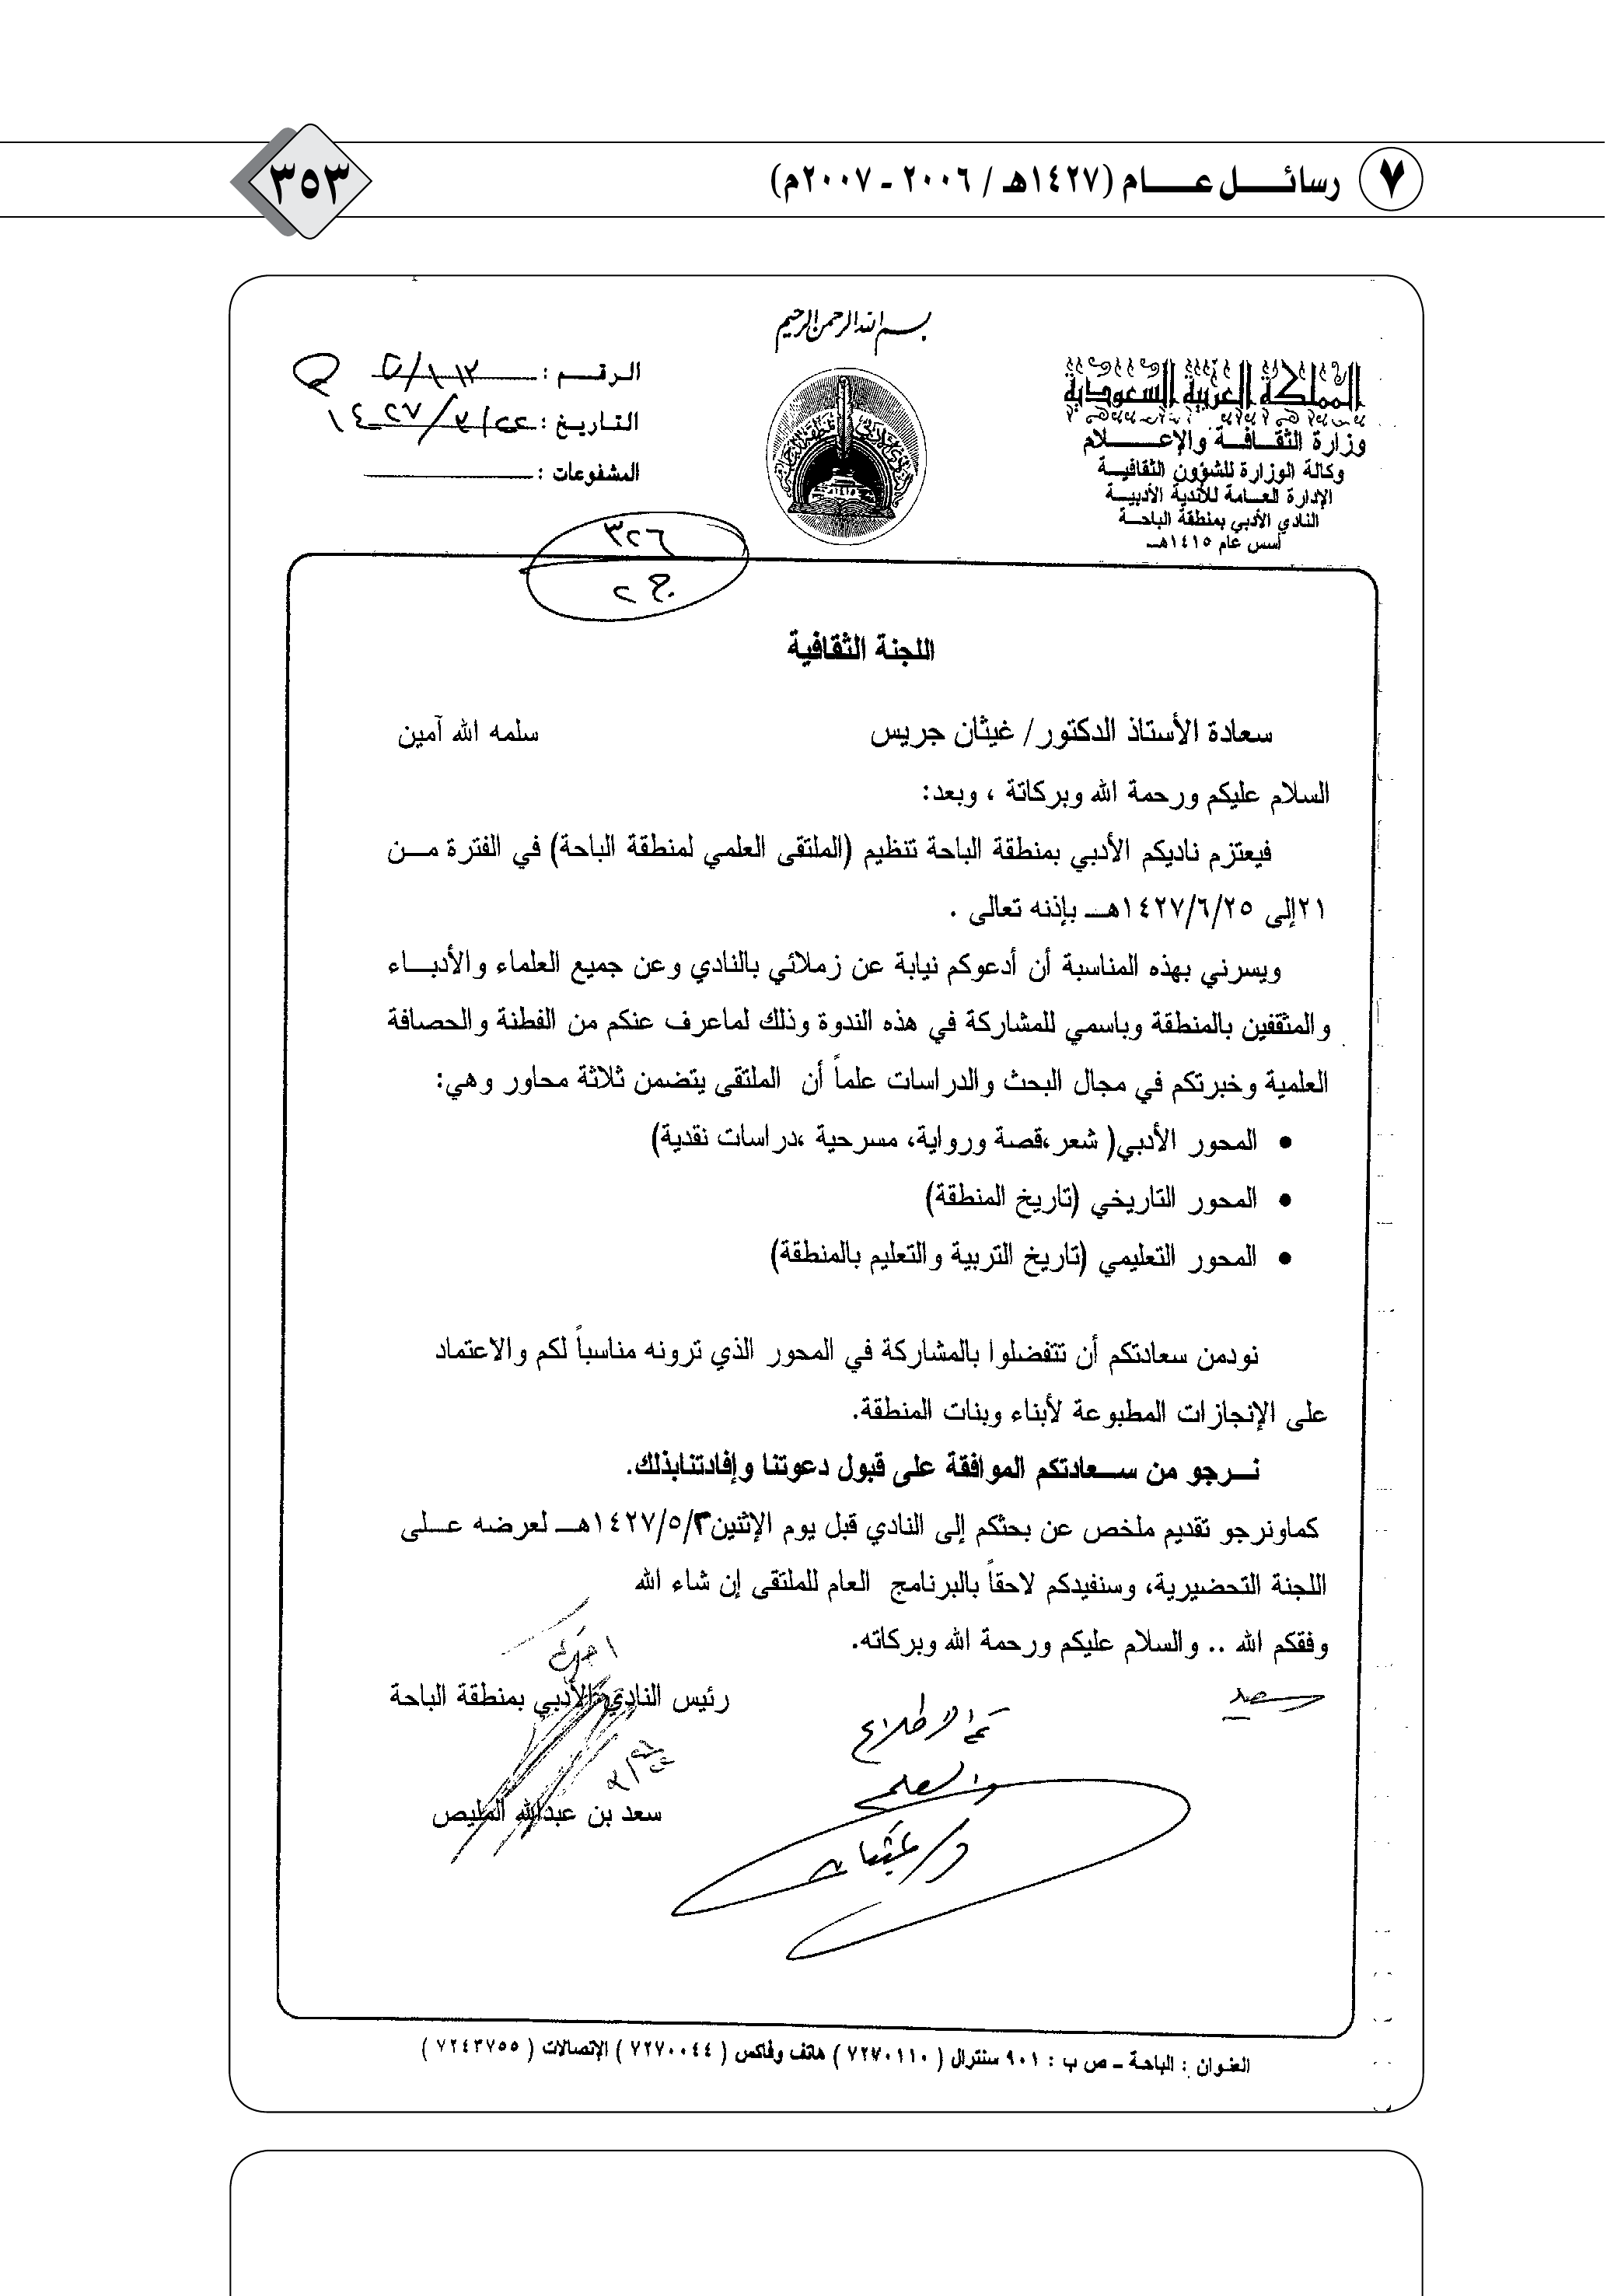 ٧ رسائل عام (١٤٢٧هـ / ٢٠٠٦ - ٢٠٠٧م)
٣٥٣
بسم الله الرحمن الرحيم
المملكة العربية السعودية
وزارة الثقافة والإعلام
وكالة الوزارة للشؤون الثقافية
الإدارة العامة للأندية الأدبية
النادي الأدبي بمنطقة الباحة
أسس عام ١٤١٥هـ
الرقم :
التاريخ :
المشفوعات :
٣٢٦
ج ٢
اللجنة الثقافية
سعادة الأستاذ الدكتور/ غيثان جريس سلمه الله آمين
السلام عليكم ورحمة الله وبركاتة ، وبعد:
فيعتزم ناديكم الأدبي بمنطقة الباحة تنظيم (الملتقى العلمي لمنطقة الباحة) في الفترة من
٢١إلى ١٤٢٧/٦/٢٥هـ بإذنه تعالى .
ويسرني بهذه المناسبة أن أدعوكم نيابة عن زملائي بالنادي وعن جميع العلماء والأدباء
والمثقفين بالمنطقة وباسمي للمشاركة في هذه الندوة وذلك لماعرف عنكم من الفطنة والحصافة
العلمية وخبرتكم في مجال البحث والدراسات علماً أن الملتقى يتضمن ثلاثة محاور وهي:
• المحور الأدبي( شعر ،قصة ورواية، مسرحية ،دراسات نقدية)
• المحور التاريخي (تاريخ المنطقة)
• المحور التعليمي (تاريخ التربية والتعليم بالمنطقة)
نودمن سعادتكم أن تتفضلوا بالمشاركة في المحور الذي ترونه مناسباً لكم والاعتماد
على الإنجازات المطبوعة لأبناء وبنات المنطقة.
نرجو من سعادتكم الموافقة على قبول دعوتنا وإفادتنابذلك.
كماونرجو تقديم ملخص عن بحثكم إلى النادي قبل يوم الإثنين١٤٢٧/٥/٣هـ لعرضه على
اللجنة التحضيرية، وسنفيدكم لاحقاً بالبرنامج العام للملتقى إن شاء الله
وفقكم الله .. والسلام عليكم ورحمة الله وبركاته.
رئيس النادي الأدبي بمنطقة الباحة
تم الاطلاع
سعد بن عبدالله المليص
د/ غيثان
العنوان : الباحة - ص ب : ٩٠١ سنترال ( ٧٢٧٠١١٠ ) هاتف وفاكس ( ٧٢٧٠٠٤٤ ) الإتصالات ( ٧٢٤٣٧٥٥ )